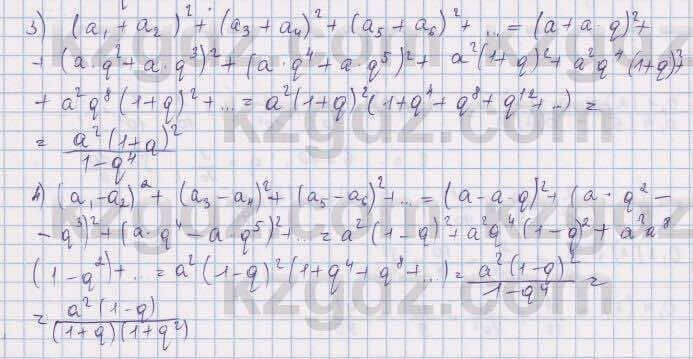 3) (a₁+a₂)²+(a₃+a₄)²+(a₅+a₆)²+...=(a+a·q)²+
+(a·q²+a·q³)²+(a·q⁴+a·q⁵)²+ a²(1+q)²+a²q⁴(1+q)²+
+a²q⁸(1+q)²+...=a²(1+q)²(1+q⁴+q⁸+q¹²+...)=
= a²(1+q)² / 1-q⁴
4) (a₁-a₂)²+(a₃-a₄)²+(a₅-a₆)²+...=(a-a·q)²+(a·q²-
-q³)²+(a·q⁴-a·q⁵)²+...=a²(1-q)²+a²q⁴(1-q)²+a²q⁸
(1-q²)+...=a²(1-q)²(1+q⁴+q⁸+...)= a²(1-q)² / 1-q⁴ =
= a²(1-q) / (1+q)(1+q²)
kzgdz.com
kzgdz.com
kzgdz.com